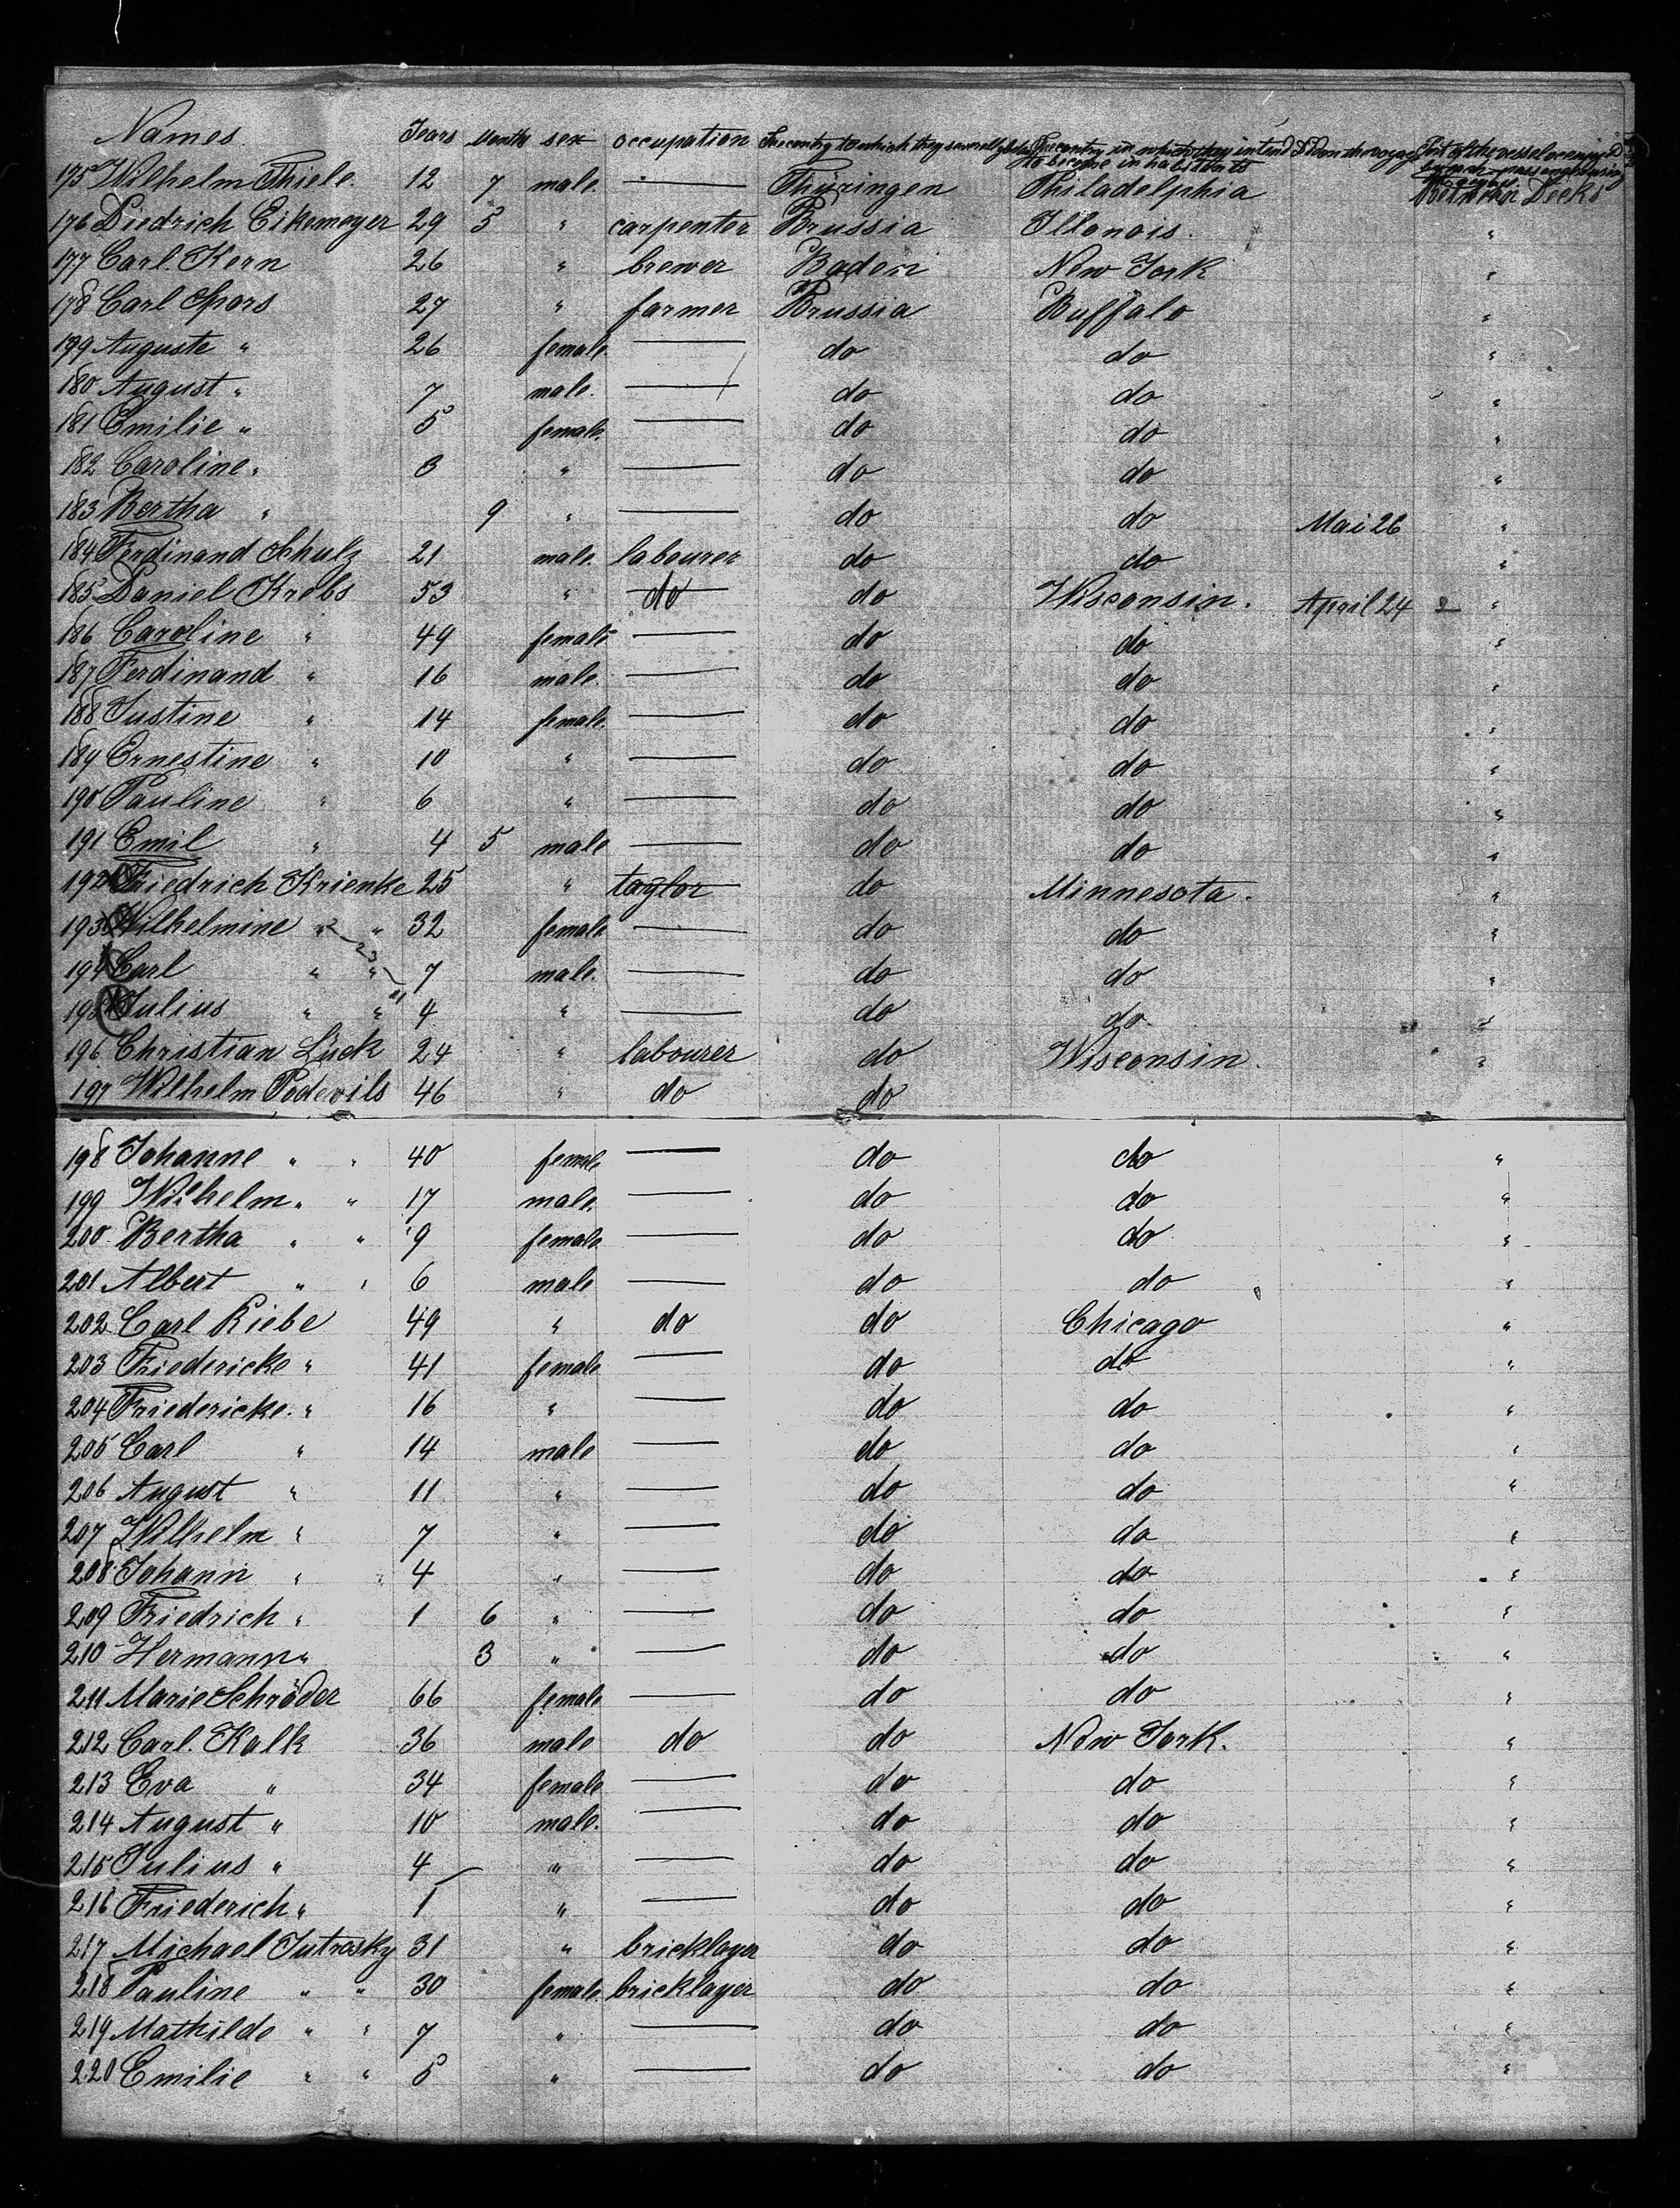 Names. Years Months sex occupation The country to which they severally belong The country in which they intend to become inhabitants Died on the voyage Part of the vessel occupied by each passenger during the voyage
175 Wilhelm Thiele. 12 7 male. — Thüringen Philadelphia Between Decks
176 Diedrich Eikemeyer 29 5 " carpenter Prussia Illonois. "
177 Carl. Kern 26 " brewer Baden New York "
178 Carl Spors 27 " farmer Prussia Buffalo "
179 Auguste " 26 female. — do do "
180 August " 7 male. — do do "
181 Emilie " 5 female. — do do "
182 Caroline " 3 " — do do "
183 Bertha " 9 " — do do Mai 26 "
184 Ferdinand Schulz 21 male. labourer do do "
185 Daniel Krebs 53 " do do Wisconsin. April 24 "
186 Caroline " 49 female — do do "
187 Ferdinand " 16 male. — do do "
188 Justine " 14 female. — do do "
189 Ernestine " 10 " — do do "
190 Pauline " 6 " — do do "
191 Emil " 4 5 male — do do "
192 Friedrich Krienke 25 " taylor do Minnesota. "
193 Wilhelmine " " 32 female — do do "
194 Carl " " 7 male. — do do "
195 Julius " " 4 " — do do. "
196 Christian Lück 24 " labourer do Wisconsin. "
197 Wilhelm Podewils 46 " do do
198 Johanne " " 40 female — do do "
199 Wilhelm " " 17 male. — do do "
200 Bertha " " 9 female — do do "
201 Albert " " 6 male — do do "
202 Carl Kiebe 49 " do do Chicago "
203 Friedericke " 41 female — do do "
204 Friedericke. " 16 " — do do "
205 Carl " 14 male — do do "
206 August " 11 " — do do "
207 Wilhelm " 7 " — do do "
208 Johann " 4 " — do do "
209 Friedrich " 1 6 " — do do "
210 Hermann " 3 " — do do "
211 Marie Schröder 66 female — do do "
212 Carl. Kalk 36 male do do New York. "
213 Eva " 34 female — do do "
214 August " 10 male. — do do "
215 Julius " 4 " — do do "
216 Friederich " 1 " — do do "
217 Michael Jutrosky 31 " bricklayer do do "
218 Pauline " " 30 female. bricklayer do do "
219 Mathilde " " 7 " — do do "
220 Emilie " " 5 " — do do "